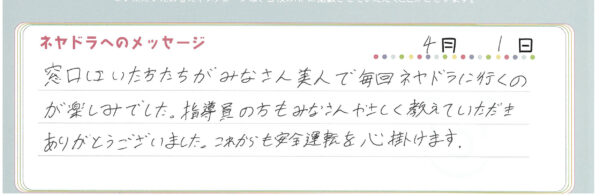 ネヤドラへのメッセージ
4月 1日
窓口にいた方たちがみなさん美人で毎回ネヤドラに行くの
が楽しみでした。指導員の方もみなさんやさしく教えていただき
ありがとうございました。これからも安全運転を心掛けます.